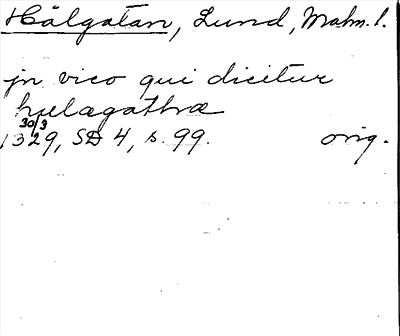 Hålgatan, Lund, Malm. l.
jn vico qui dicitur
hulagathræ
30/3
1329, SD 4, s. 99. orig.